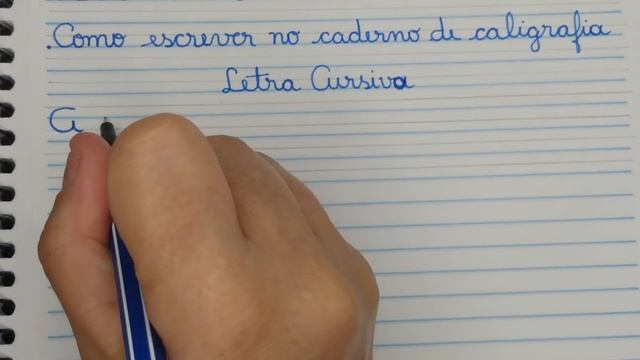 .Como escrever no caderno de caligrafia
Letra Cursiva